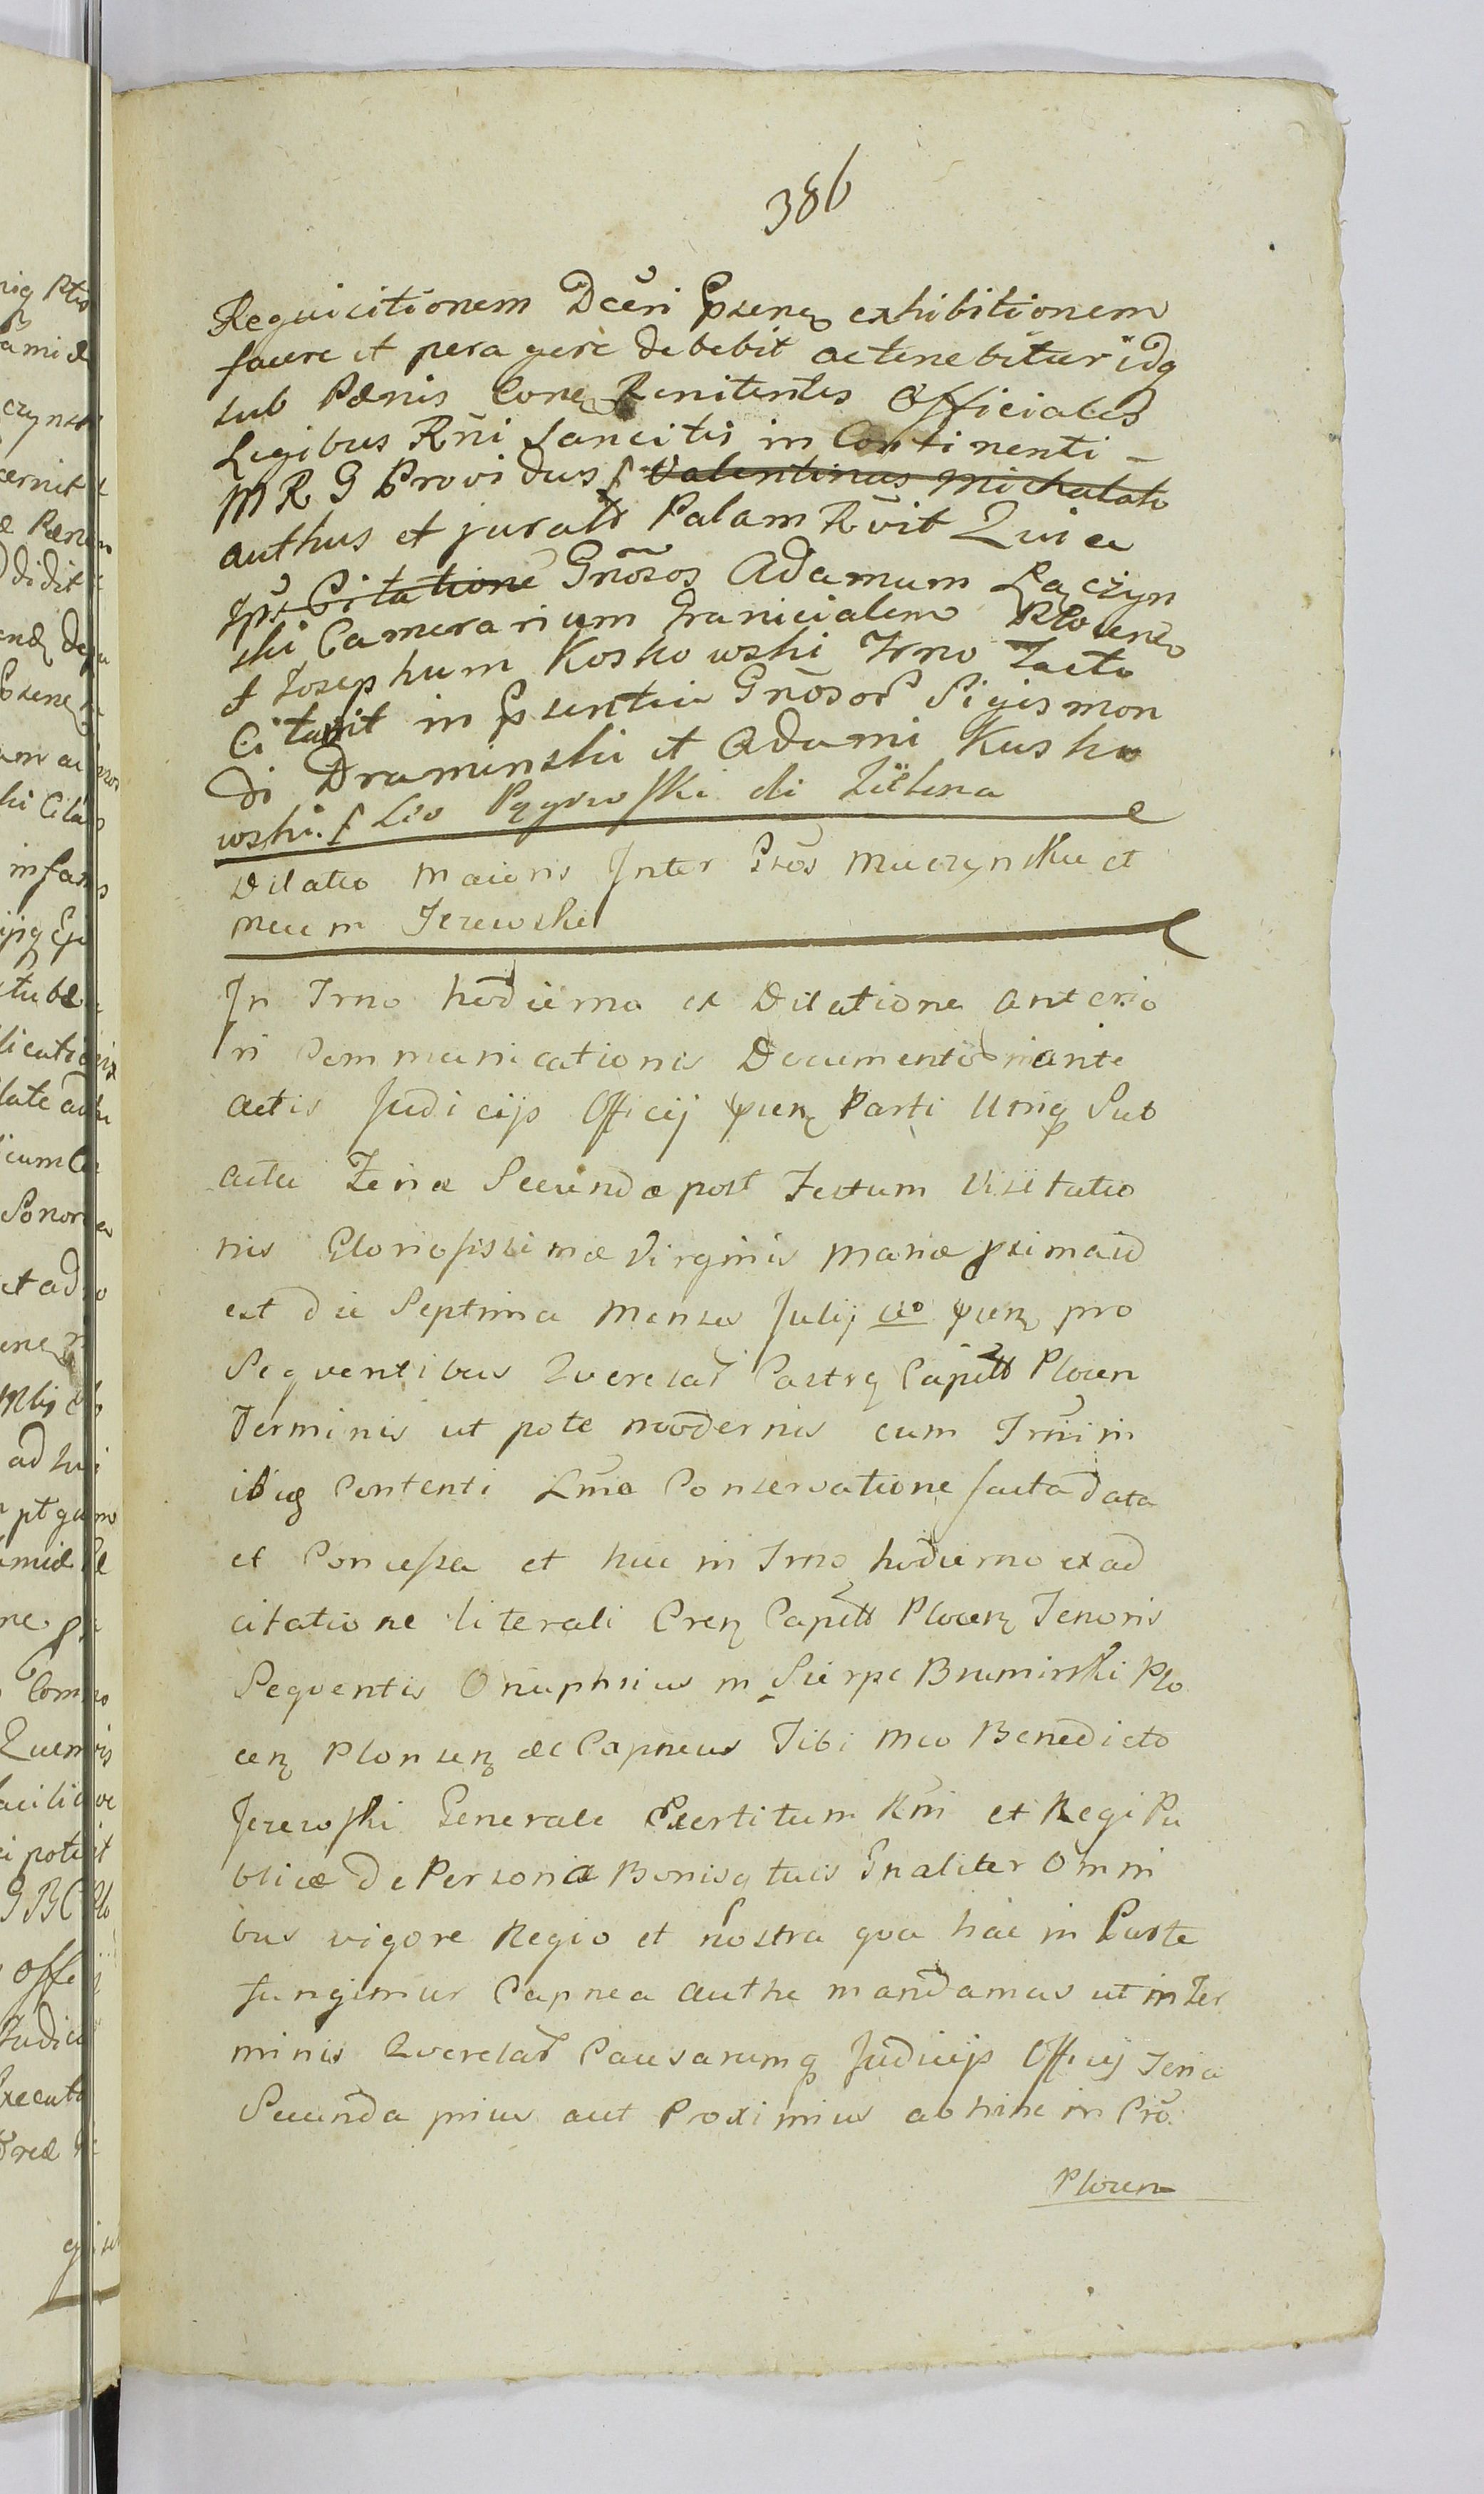 386
Requicitionem Dceri Psenq exhibitionem
facere et peragere debebit actenebitur idq
sub Pænis Conq Renitentes Officiales
Legibus Rñi Sancitis in Continenti -
MRG Providus Valentinus Michalak
authus et juratt Palam Rvit Quia
Citatione Gñosos Adamum Łączyn
ski Camerarium Granicialem Plocensz
et Josephum Koskowski Trno Tacto
Citavit in Psentia Gñosor Sigismon
di Draminski et Adami Kusko
wski. Leo Pągowski di Zielona
Dilatio Maioris Inter Gsos Muczynskie et
Meum Jezewski
In Trno hodierno ex Dilatione anterio
ri Communicationis Documentor ante
actis Judicijs Officij psenq Parti Utriq Sub
actu Feria Secunda post Festum Visitatio
nis Gloriosissimæ Virginis Mariæ proima id
est die Septima Mensis Julij psenq pro
Sequentibus Querelar Castrq Capitt Plocen
Terminis ut pote modernis cum Trni in
ibiq Contenti Lmã Conservatione facta data
et Concessa et huc in Trno hodierno ex ad
citatione literali Crenq Capitt Plocenq Tenoris
Sequentis Onuphrius in Sierpc Bruminski Plo
cenq Plonsenq &c Capneus Tibi Mco Benedicto
Jezewski Generale Exertitum Rñi et Regi Pu
blicæ de Persona Bonisq tuis Gnaliter Omni
bus vigore Regio et nostra qua hac in Parte
fungimur Capnea authe mandamus ut in Ter
minis Querelar Causarumq Judicijs Officij Feria
Secunda prius aut Proximius ab hinc in Cro
Plocen